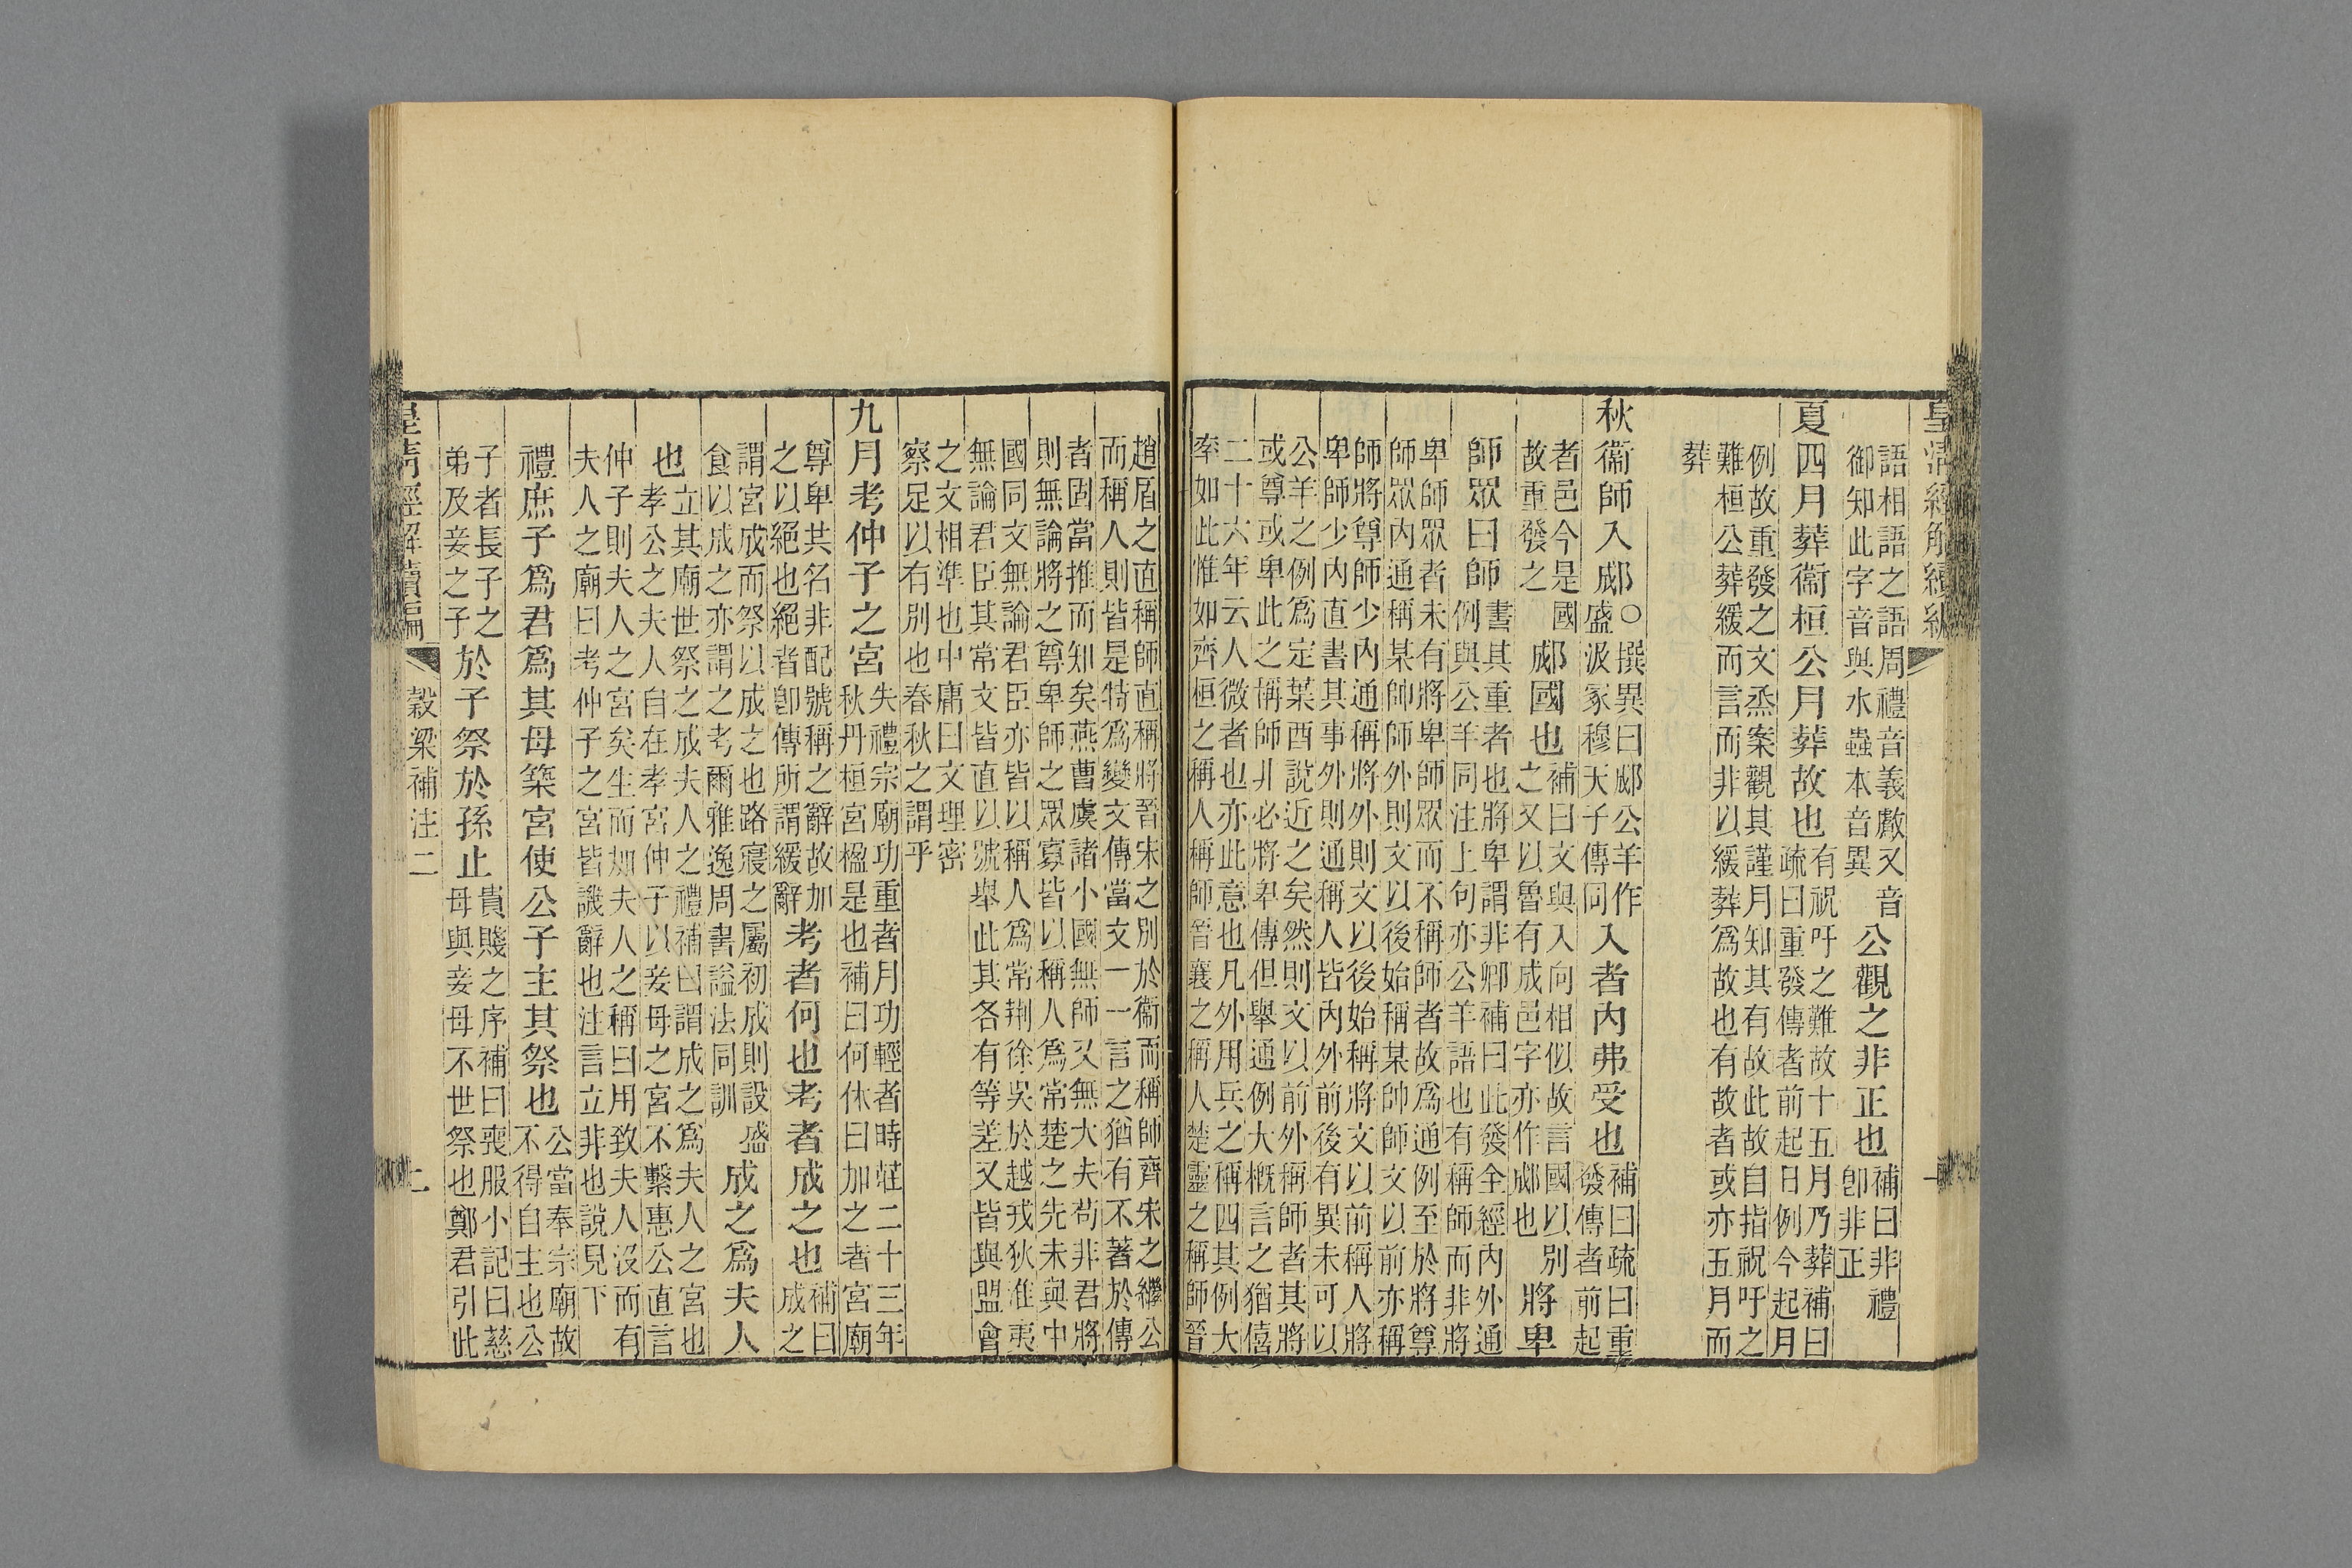 皇清經解續編
語相語之語周禮音義戲又音
御知此字音與水蟲本音異
公觀之非正也
補曰非禮
卽非正
夏四月葬衞桓公月葬故也
有祝吁之難故十五月乃葬補曰
疏曰重發傳者前起日例今起月
例故重發之文烝案觀其謹月知其有故此故自指祝吁之
難桓公葬緩而言而非以緩葬爲故也有故者或亦五月而
葬
秋衞師入郕
○撰異曰郕公羊作
盛汲冢穆天子傳同
入者內弗受也
補曰疏曰重
發傳者前起
者邑今是國
故重發之
郕國也
補曰文與入向相似故言國以別
之又以魯有成邑字亦作郕也
將卑
師眾曰師
書其重者也將卑謂非卿補曰此發全經內外通
例與公羊同注上句亦公羊語也有稱師而非將
卑師眾者未有將卑師眾而不稱師者故爲通例至於將尊
師眾內通稱某帥師外則文以後始稱某帥師文以前亦稱
師將尊師少內通稱將外則文以後始稱將文以前稱人將
卑師少內直書其事外則通稱人皆內外前後有異未可以
公羊之例爲定葉酉說近之矣然則文以前外稱師者其將
或尊或卑此之稱師非必將卑傳但舉通例大概言之猶僖
二十六年云人微者也亦此意也凡外用兵之稱四其例大
率如此惟如齊桓之稱人稱師晉襄之稱人楚靈之稱師晉
趙盾之直稱師直稱將晉宋之別於衞而稱師齊宋之繼公
而稱人則皆是特爲變文傳當文一一言之猶有不著於傳
者固當推而知矣燕曹虞諸小國無師又無大夫苟非君將
則無論將之尊卑師之眾寡皆以稱人爲常楚之先未與中
國同文無論君臣亦皆以稱人爲常荆徐吳於越戎狄淮夷
無論君臣其常文皆直以號舉此其各有等差又皆與盟會
之文相準也中庸曰文理密
察足以有別也春秋之謂乎
九月考仲子之宮
失禮宗廟功重者月功輕者時莊二十三年
秋丹桓宮楹是也補曰何休曰加之者宮廟
尊卑共名非配號稱之辭故加
之以絕也絕者卽傳所謂緩辭
考者何也考者成之也
補曰
成之
謂宮成而祭以成之也路寢之屬初成則設盛
食以成之亦謂之考爾雅逸周書謚法同訓
成之爲夫人
也
立其廟世祭之成夫人之禮補曰謂成之爲夫人之宮也
孝公之夫人自在孝宮仲子以妾母之宮不繫惠公直言
仲子則夫人之宮矣生而加夫人之稱曰用致夫人沒而有
夫人之廟曰考仲子之宮皆譏辭也注言立非也說見下
禮庶子爲君爲其母築宮使公子主其祭也
公當奉宗廟故
不得自主也公
子者長子之
弟及妾之子
於子祭於孫止
貴賤之序補曰喪服小記曰慈
母與妾母不世祭也鄭君引此
皇清經解續編
穀梁補注二
二